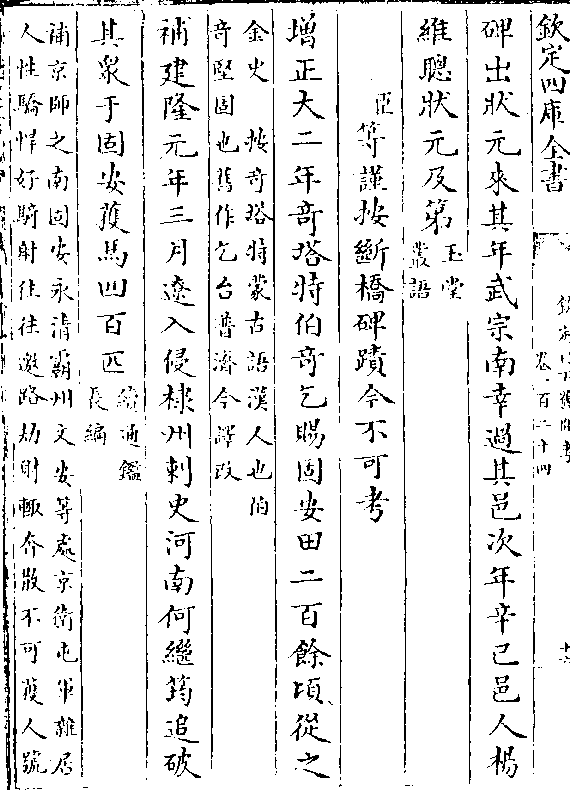 欽定四庫全書
卷一百二十四
碑出狀元來其年武宗南幸過其邑次年辛巳邑人楊
維聰狀元及第玉堂
叢語
臣等謹按斷橋碑蹟今不可考
增正大二年竒塔特伯竒乞賜固安田二百餘頃從之
金史　按竒塔特蒙古語漢人也伯
竒堅固也舊作乞台普濟今譯改
補建隆元年三月遼入侵棣州刺史河南何繼筠追破
其衆于固安獲馬四百匹續通鑑
長編
補京師之南固安永清霸州文安等處京衛屯軍雜居
人性驕悍好騎射往往邀路劫財輒奔散不可獲人號